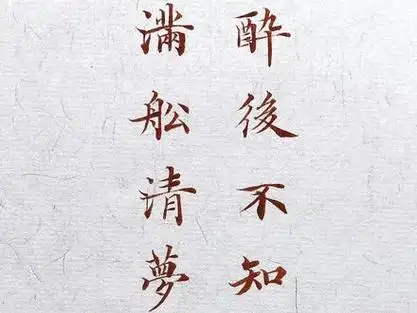 醉後不知
滿舩清夢